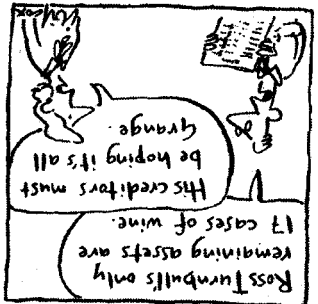 Ross Turnbull's only
remaining assets are
17 cases of wine.
His creditors must
be hoping it's all
Grange.